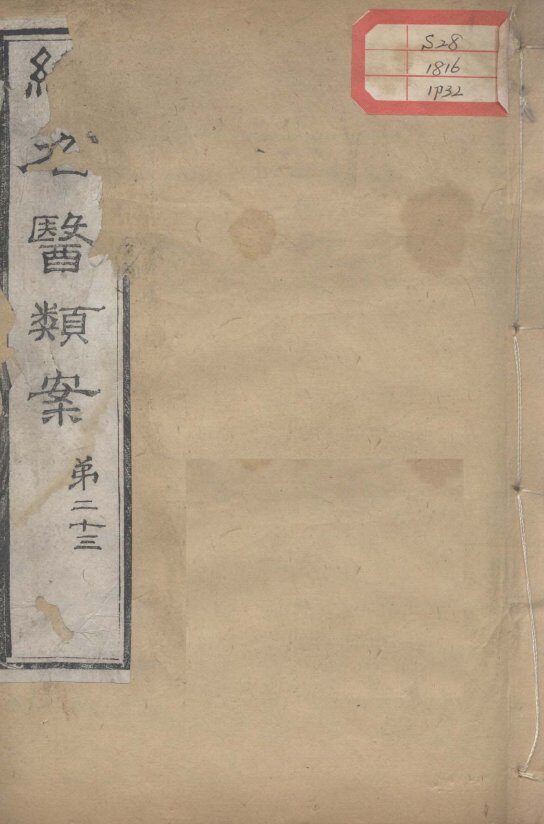 醫類案
弟二十三
S28
1816
1P32